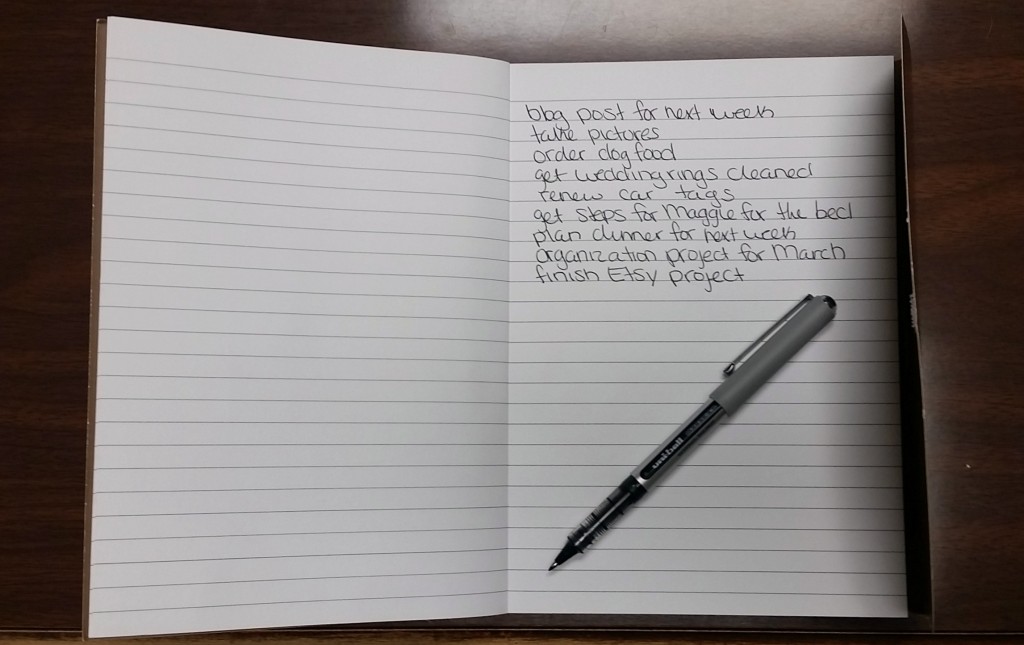 blog post for next week
take pictures
order dog food
get wedding rings cleaned
renew car tags
get steps for Maggie for the bed
plan dinner for next week
organization project for March
finish Etsy project
uni-ball